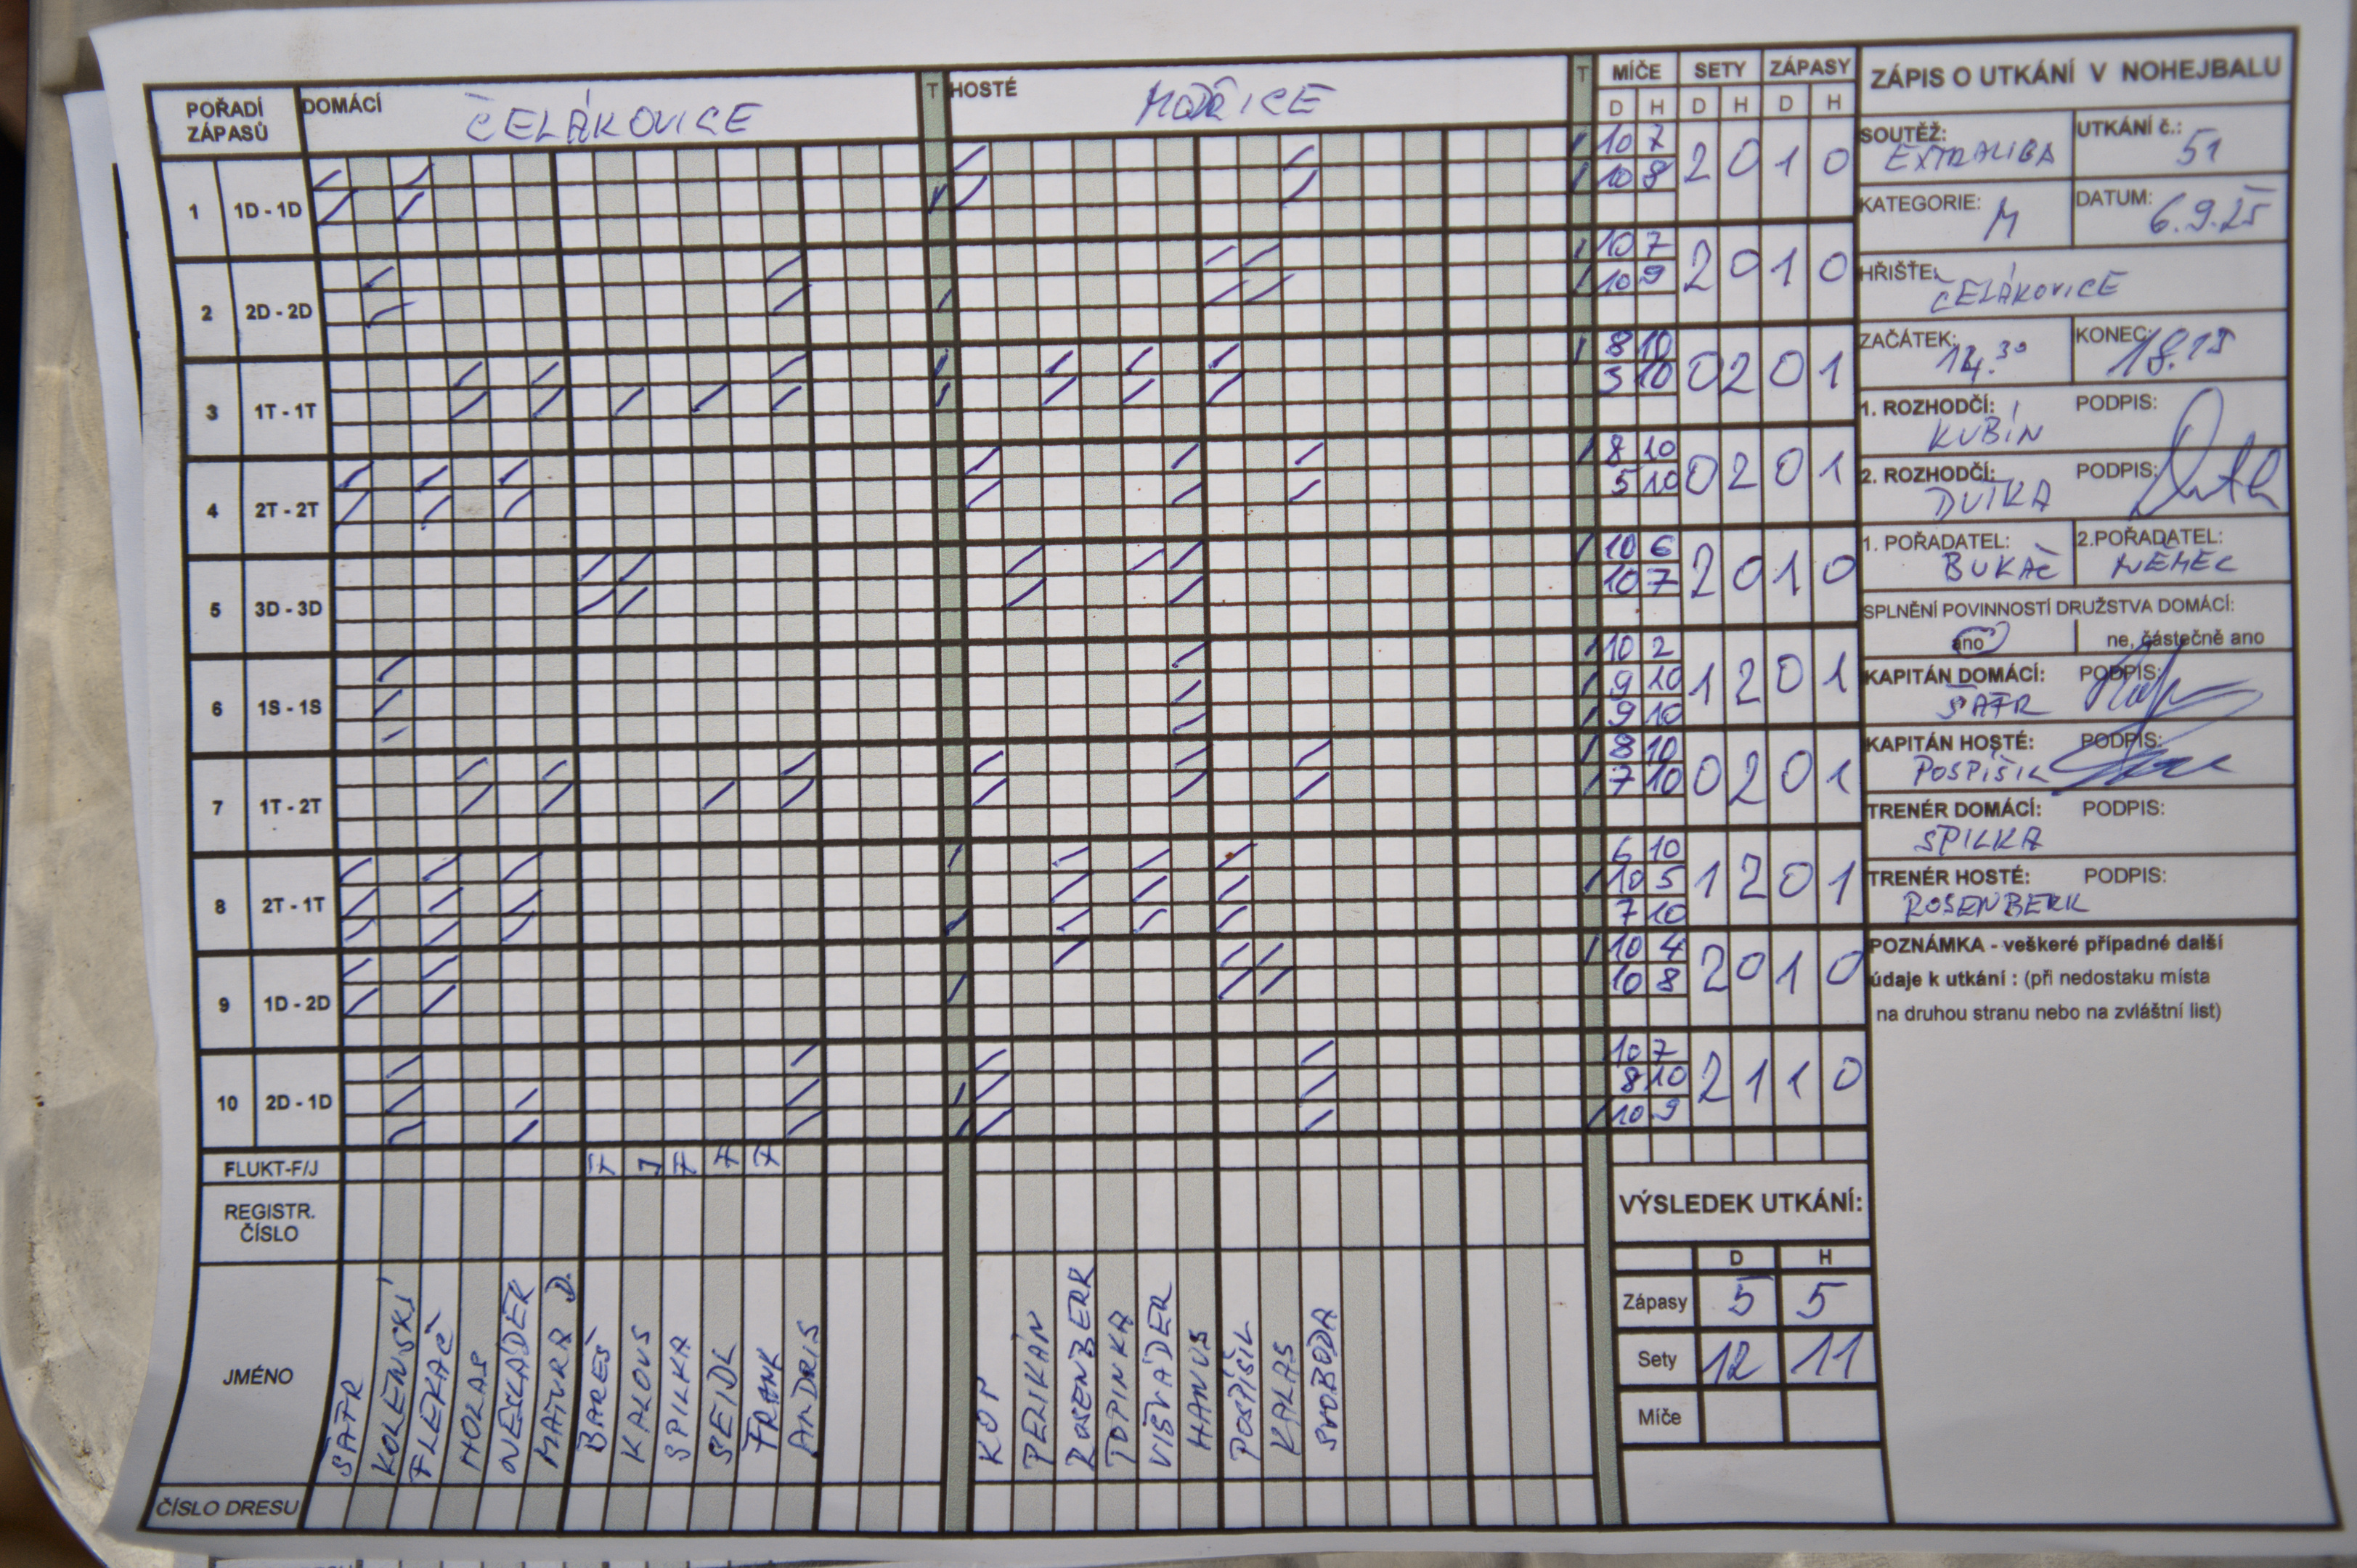 POŘADÍ ZÁPASŮ
DOMÁCÍ ČELÁKOVICE
T
HOSTÉ MODŘICE
T
MÍČE SETY ZÁPASY
D H D H D H
1 1D - 1D 10 7 2 0 1 0
10 8
2 2D - 2D 10 7 2 0 1 0
10 9
3 1T - 1T 8 10 0 2 0 1
5 10
4 2T - 2T 8 10 0 2 0 1
5 10
5 3D - 3D 10 6 2 0 1 0
10 7
6 1S - 1S 10 2 1 2 0 1
9 10
9 10
7 1T - 2T 8 10 0 2 0 1
7 10
8 2T - 1T 6 10 1 2 0 1
10 5
7 10
9 1D - 2D 10 4 2 0 1 0
10 8
10 2D - 1D 10 7 2 1 1 0
8 10
10 9
FLUKT-F/J
REGISTR. ČÍSLO
JMÉNO
ŠAFR
KOLENSKÝ
FLEKAČ
HOLAS
NECKÁŘ
MATURA D.
BAREŠ
KALOUS
SPILKA
SEIDL
FRANK
ANDRIS
KOP
PELIKÁN
ROSENBERK
TOPINKA
VIŠVÁDER
HANUS
POSPÍŠIL
KALAS
SVOBODA
ČÍSLO DRESU
VÝSLEDEK UTKÁNÍ:
D H
Zápasy 5 5
Sety 12 11
Míče
ZÁPIS O UTKÁNÍ V NOHEJBALU
SOUTĚŽ: EXTRALIGA
UTKÁNÍ č.: 51
KATEGORIE: M
DATUM: 6.9.25
HŘIŠTĚ: ČELÁKOVICE
ZAČÁTEK: 14.30
KONEC: 18.15
1. ROZHODČÍ: KUBÍN PODPIS:
2. ROZHODČÍ: DUTKA PODPIS:
1. POŘADATEL: BUKAČ
2.POŘADATEL: NĚMEC
SPLNĚNÍ POVINNOSTÍ DRUŽSTVA DOMÁCÍ:
ano ne, částečně ano
KAPITÁN DOMÁCÍ: ŠAFR PODPIS:
KAPITÁN HOSTÉ: POSPÍŠIL PODPIS:
TRENÉR DOMÁCÍ: SPILKA PODPIS:
TRENÉR HOSTÉ: ROSENBERK PODPIS:
POZNÁMKA - veškeré případné další
údaje k utkání : (při nedostaku místa
na druhou stranu nebo na zvláštní list)